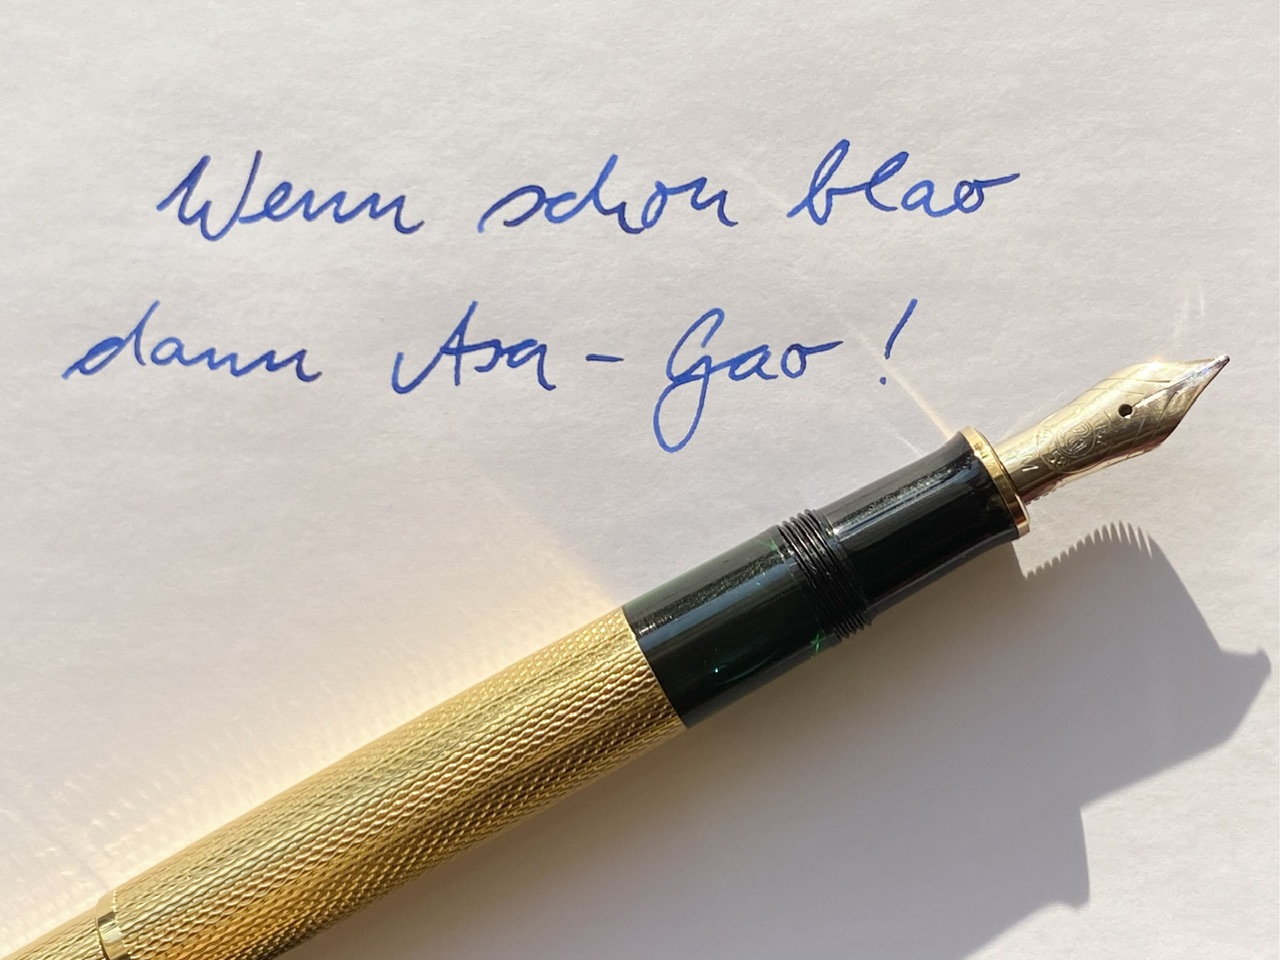 Wenn schon blao
dann Asa-Gao!